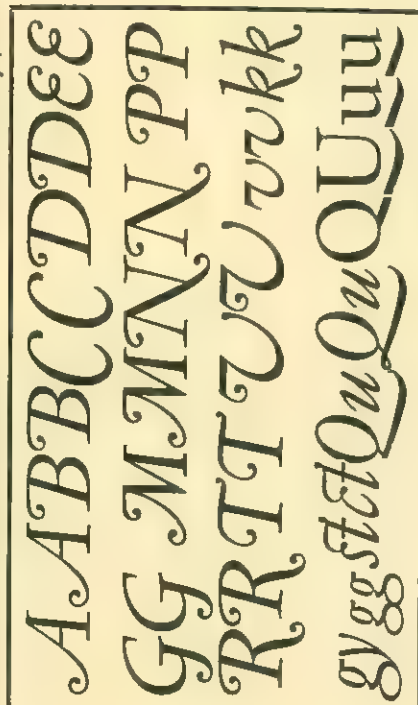 AABBCCDDEE
GGMMNNPP
RRTTUUvvkk
gy gg st ct Qu Qu QUuu